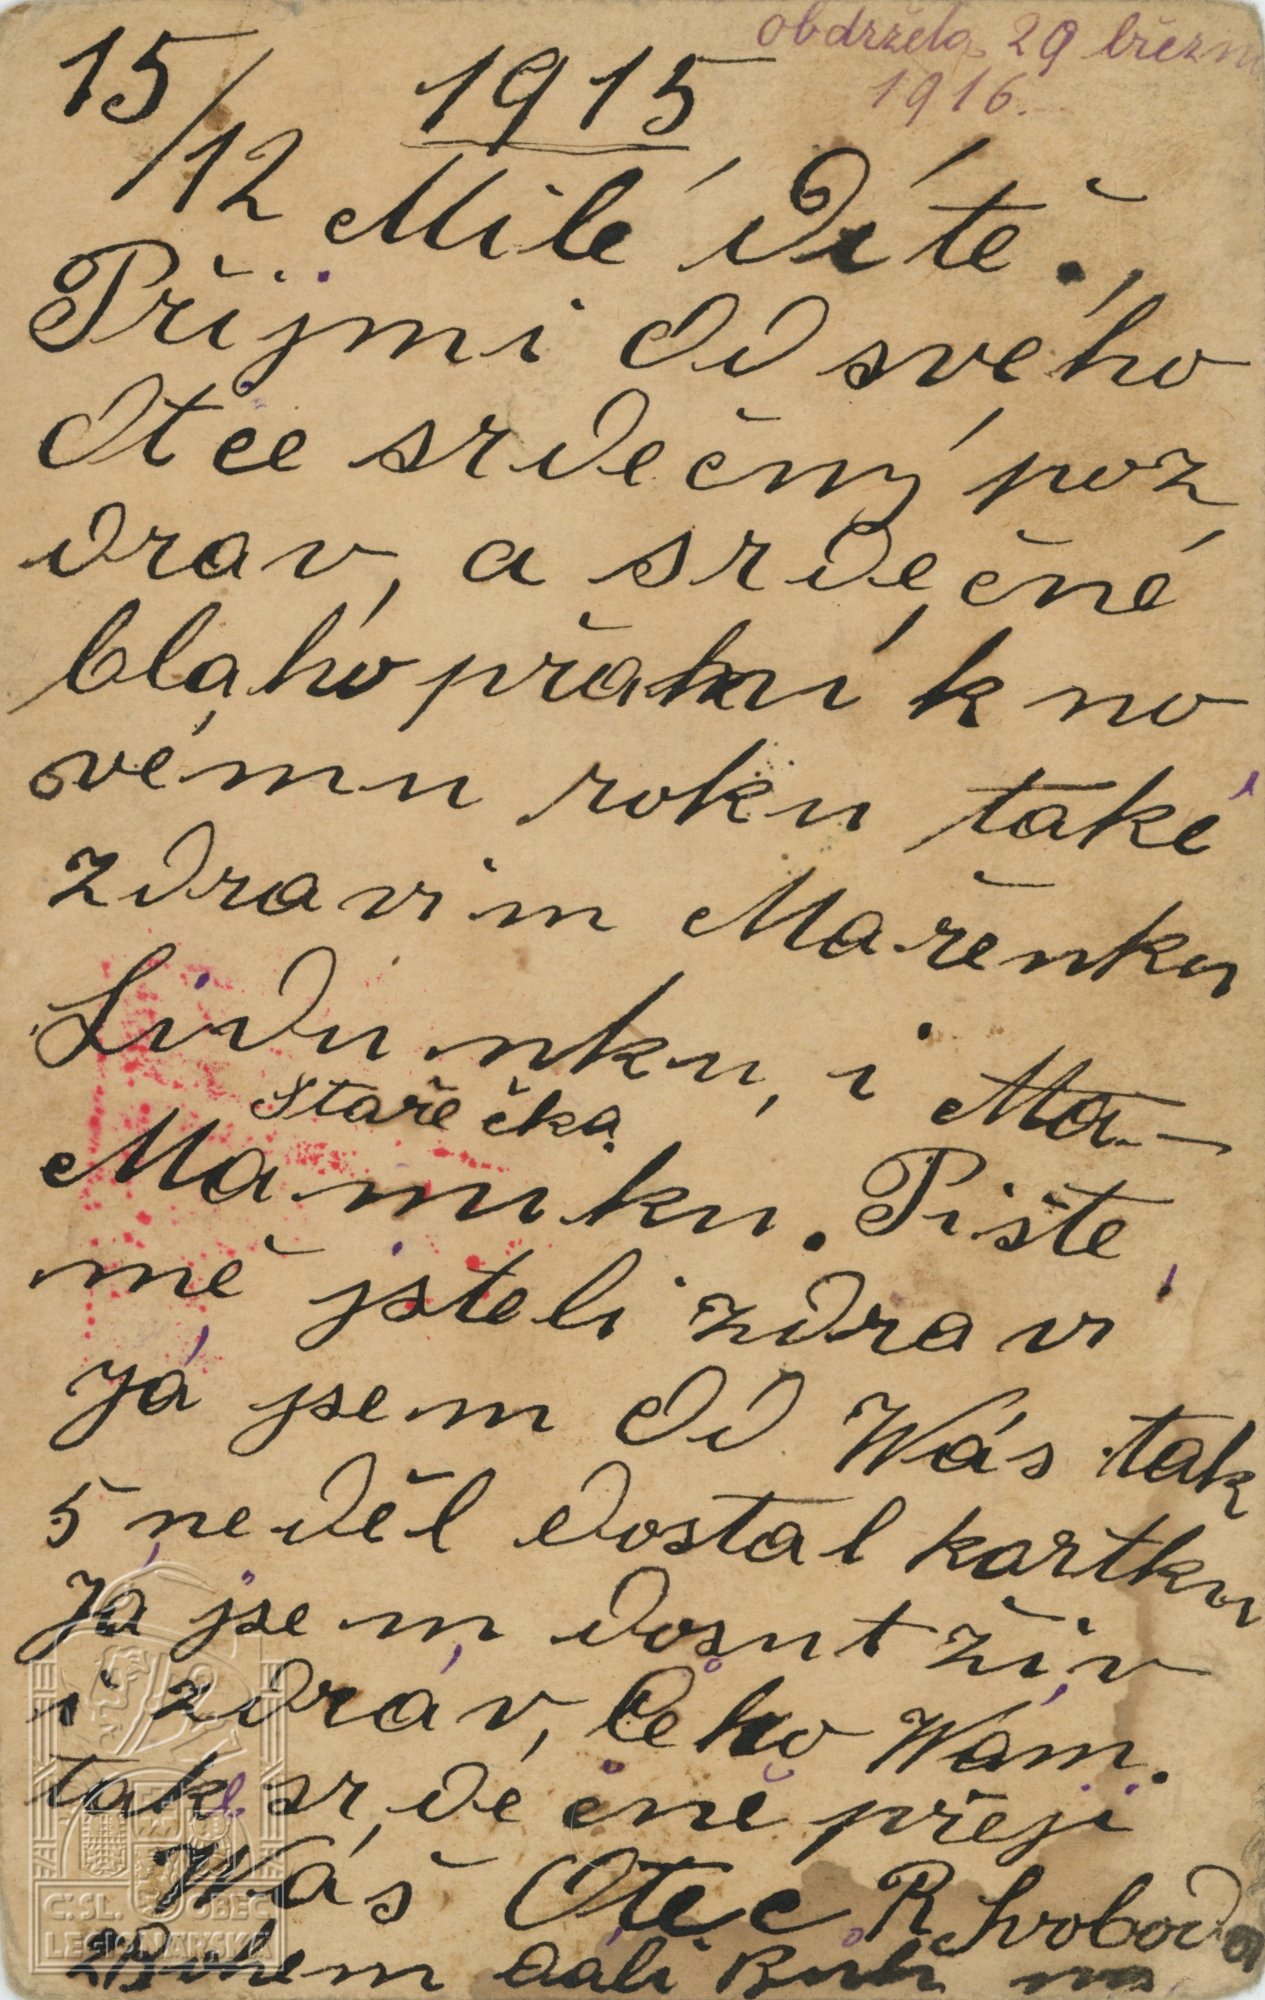 obdržela 29 března
1916.
15/12 1915
Milé Dítě.
Přijmi od svého
Otce srdečný poz
drav, a srdečné
blahopřání k no
vému roku také
zdravim Mařenku
Lidunku, i Ma-
Stařečka
Mamiku. Pište
mě jsteli zdraví
Já jsem od Wás tak
5 neděl dostal kartku
Já jsem dosut živ
i zdráv, čeho Wám.
tak srdečně přeji
Wáš Otec R Svoboda
ZBohem dáli Bůh
Č. SL. OBEC
LEGIONÁŘSKÁ